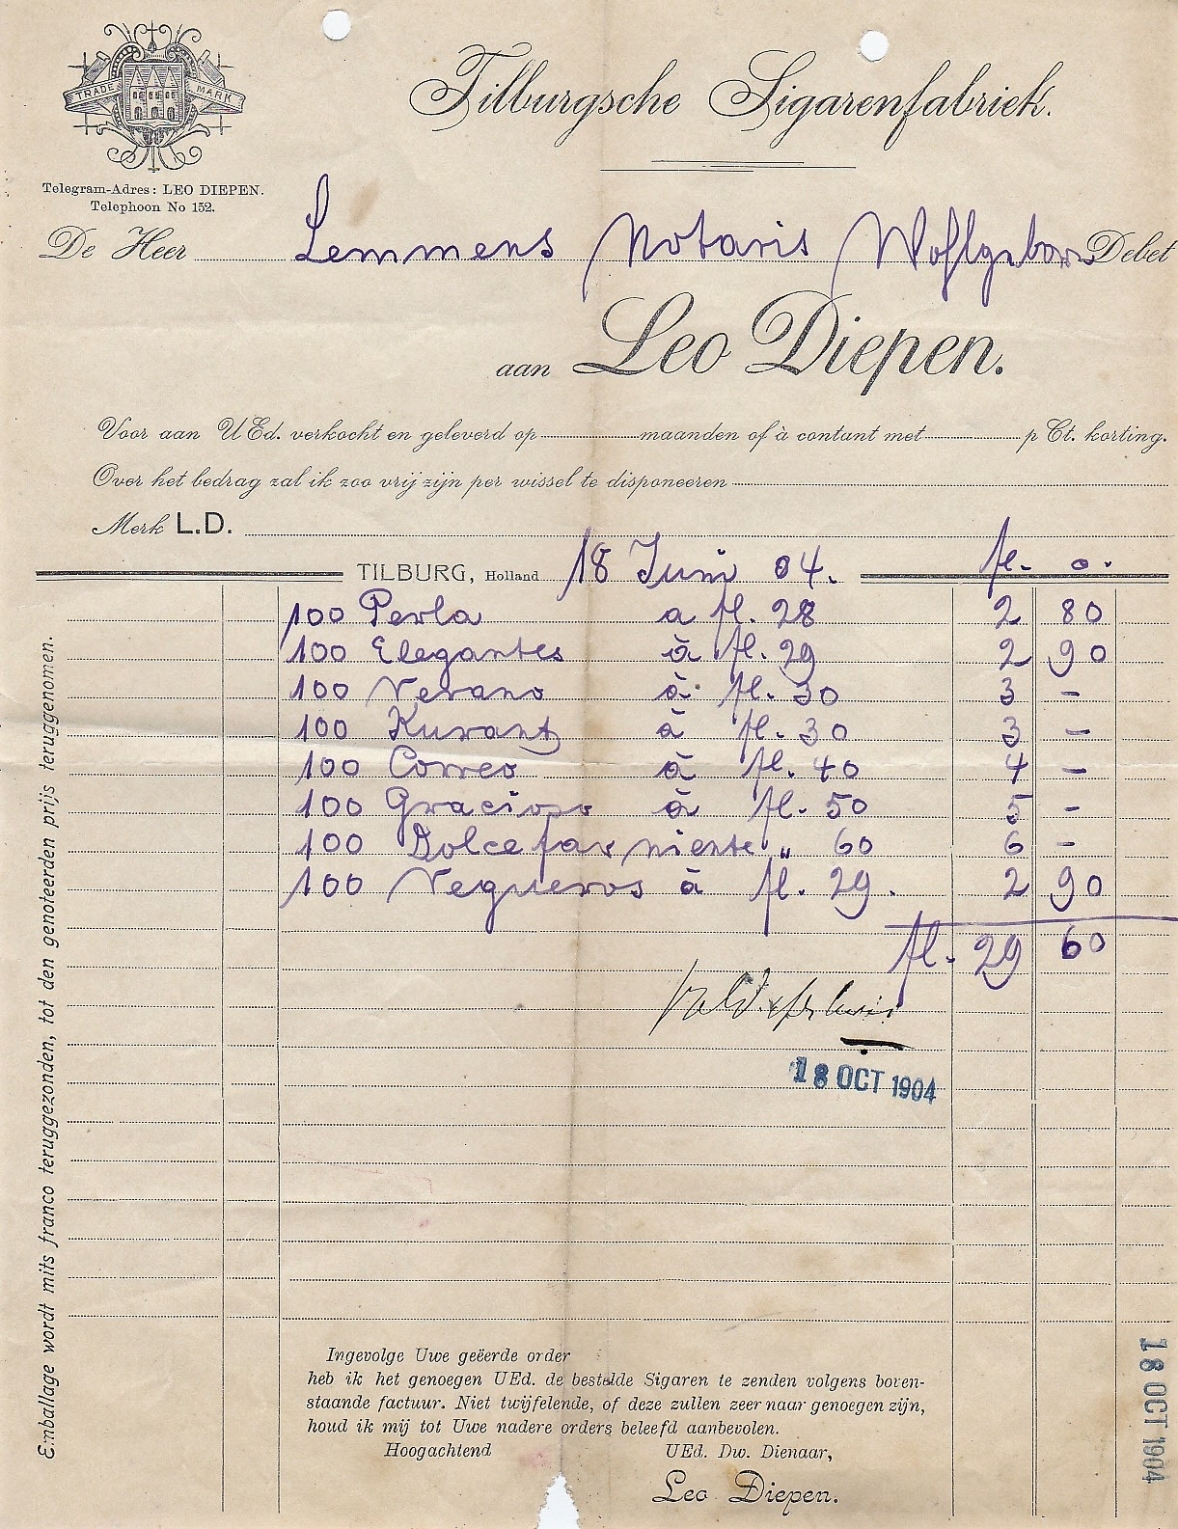 TRADE MARK
Tilburgsche Sigarenfabriek.
Telegram-Adres: LEO DIEPEN.
Telephoon No 152.
De Heer Lemmens Notaris Wohlgeboren Debet
aan Leo Diepen.
Voor aan UEd. verkocht en geleverd op maanden of à contant met p Ct. korting.
Over het bedrag zal ik zoo vrij zijn per wissel te disponeeren
Merk L.D.
TILBURG, Holland 18 Juni 04. fl. c.
100 Perla a fl. 28 2 80
100 Elegantes à fl. 29 2 90
100 Verano à fl. 30 3 -
100 Kurant à fl. 30 3 -
100 Correo à fl. 40 4 -
100 Gracioso à fl. 50 5 -
100 Dolce far niente „ 60 6 -
100 Vegueros à fl. 29. 2 90
fl. 29 60
18 OCT 1904
Emballage wordt mits franco teruggezonden, tot den genoteerden prijs teruggenomen.
Ingevolge Uwe geëerde order
heb ik het genoegen UEd. de bestelde Sigaren te zenden volgens boven-
staande factuur. Niet twijfelende, of deze zullen zeer naar genoegen zijn,
houd ik mij tot Uwe nadere orders beleefd aanbevolen.
Hoogachtend UEd. Dw. Dienaar,
Leo Diepen.
18 OCT 1904